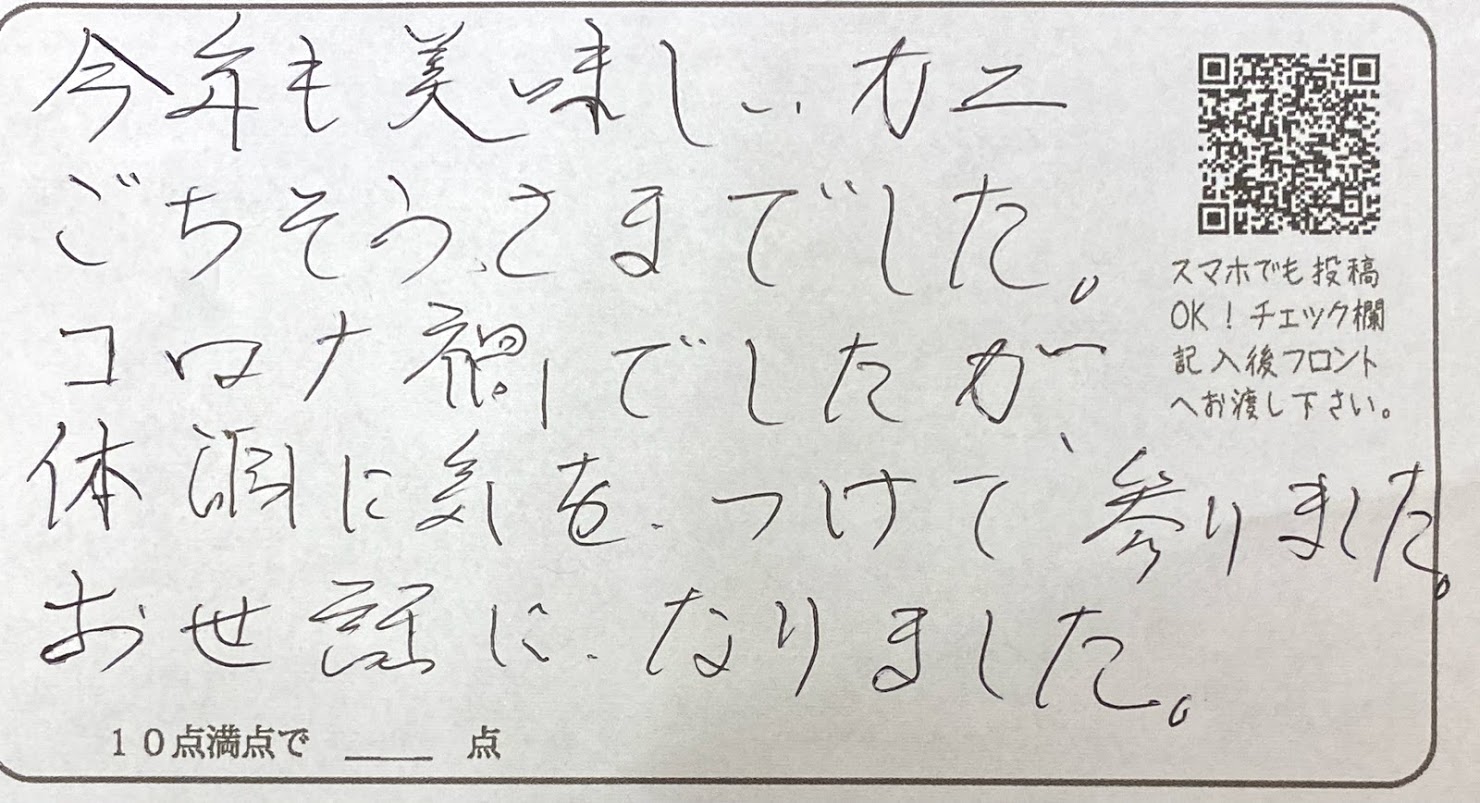 今年も美味しいカニ
ごちそうさまでした。
コロナ禍でしたが、
体調に気をつけて参りました。
お世話になりました。
スマホでも投稿
OK！チェック欄
記入後フロント
へお渡し下さい。
10点満点で ___ 点